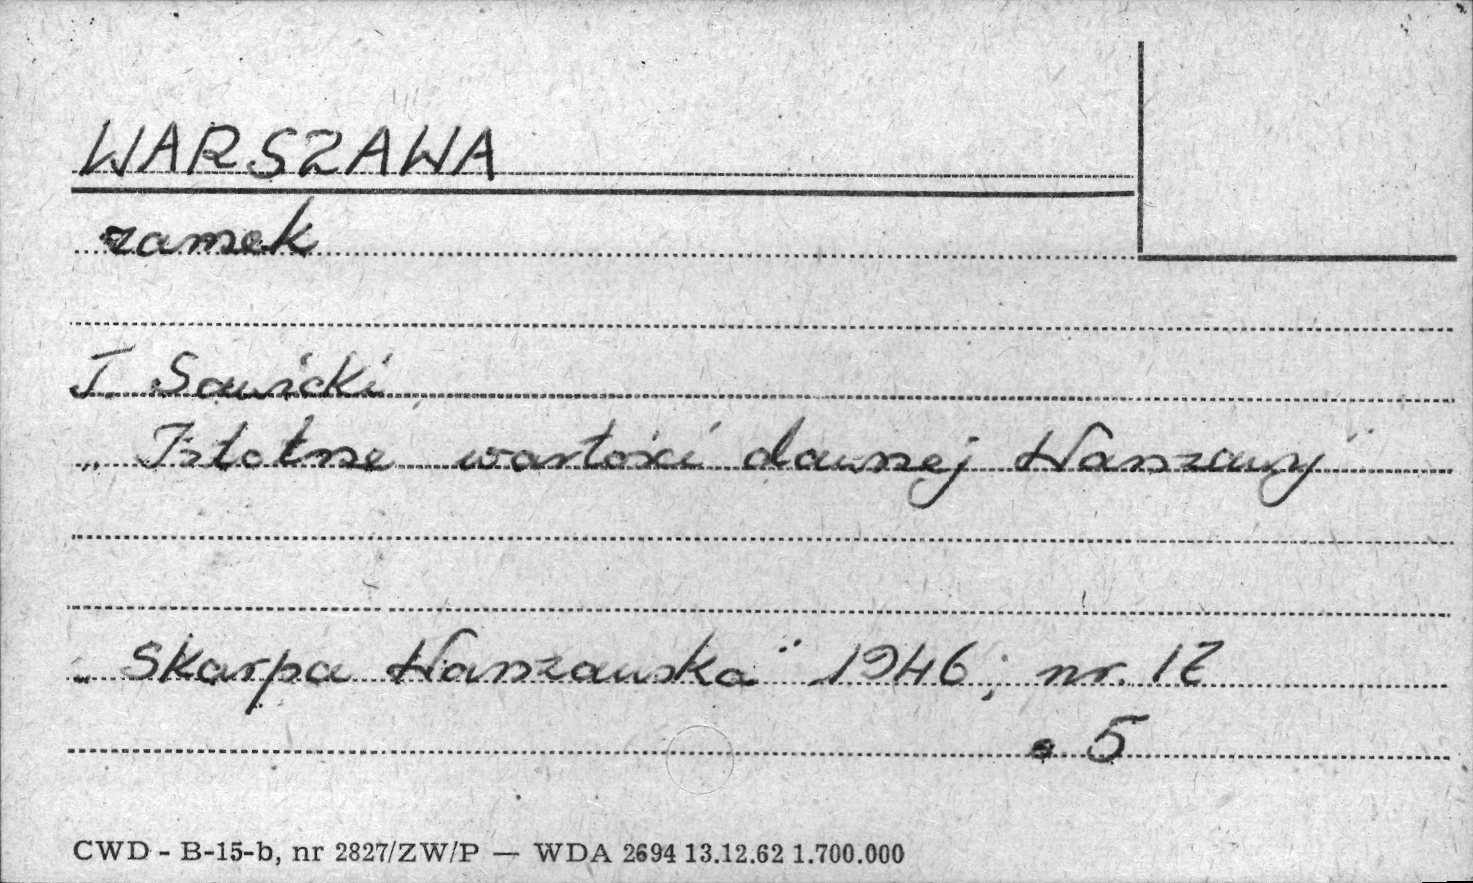 WARSZAWA
zamek
T. Sawicki
„Istotne wartości dawnej Warszawy"
„Skarpa Warszawska" 1946; nr. 12
s 5
CWD - B-15-b, nr 2827/ZW/P — WDA 2694 13.12.62 1.700.000